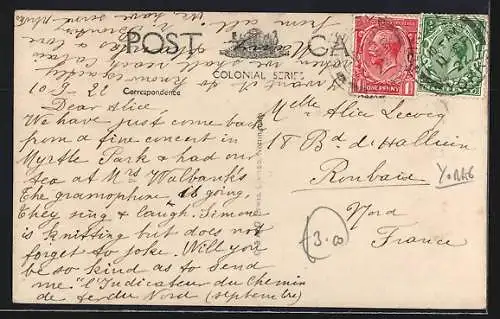 POST CA
COLONIAL SERIES
Correspondence
10-9-22
Dear Alice
We have just come back
from a fine concert in
Myrtle Park & had our
tea at Mrs Walbank's
The gramophone is going,
they sing & laugh. Simone
is knitting but does not
forget to joke. Will you
be so kind as to send
me "l'Indicateur du Chemin
de fer du Nord (septembre)
want it to know exactly
when we shall reach Calais
love
from all. We have some
ONE PENNY
Melle Alice Leclercq
18 Bd d'Halluin
Roubaix
Nord
France
YORKS
3.0